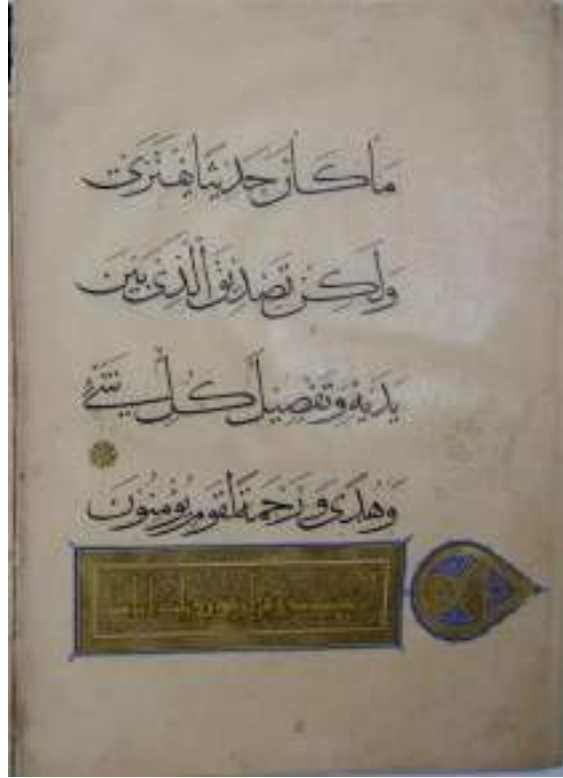 مَا كَانَ حَدِيثًا يُفْتَرَىٰ
وَلَٰكِنْ تَصْدِيقَ الَّذِي بَيْنَ
يَدَيْهِ وَتَفْصِيلَ كُلِّ شَيْءٍ
وَهُدًى وَرَحْمَةً لِّقَوْمٍ يُؤْمِنُونَ